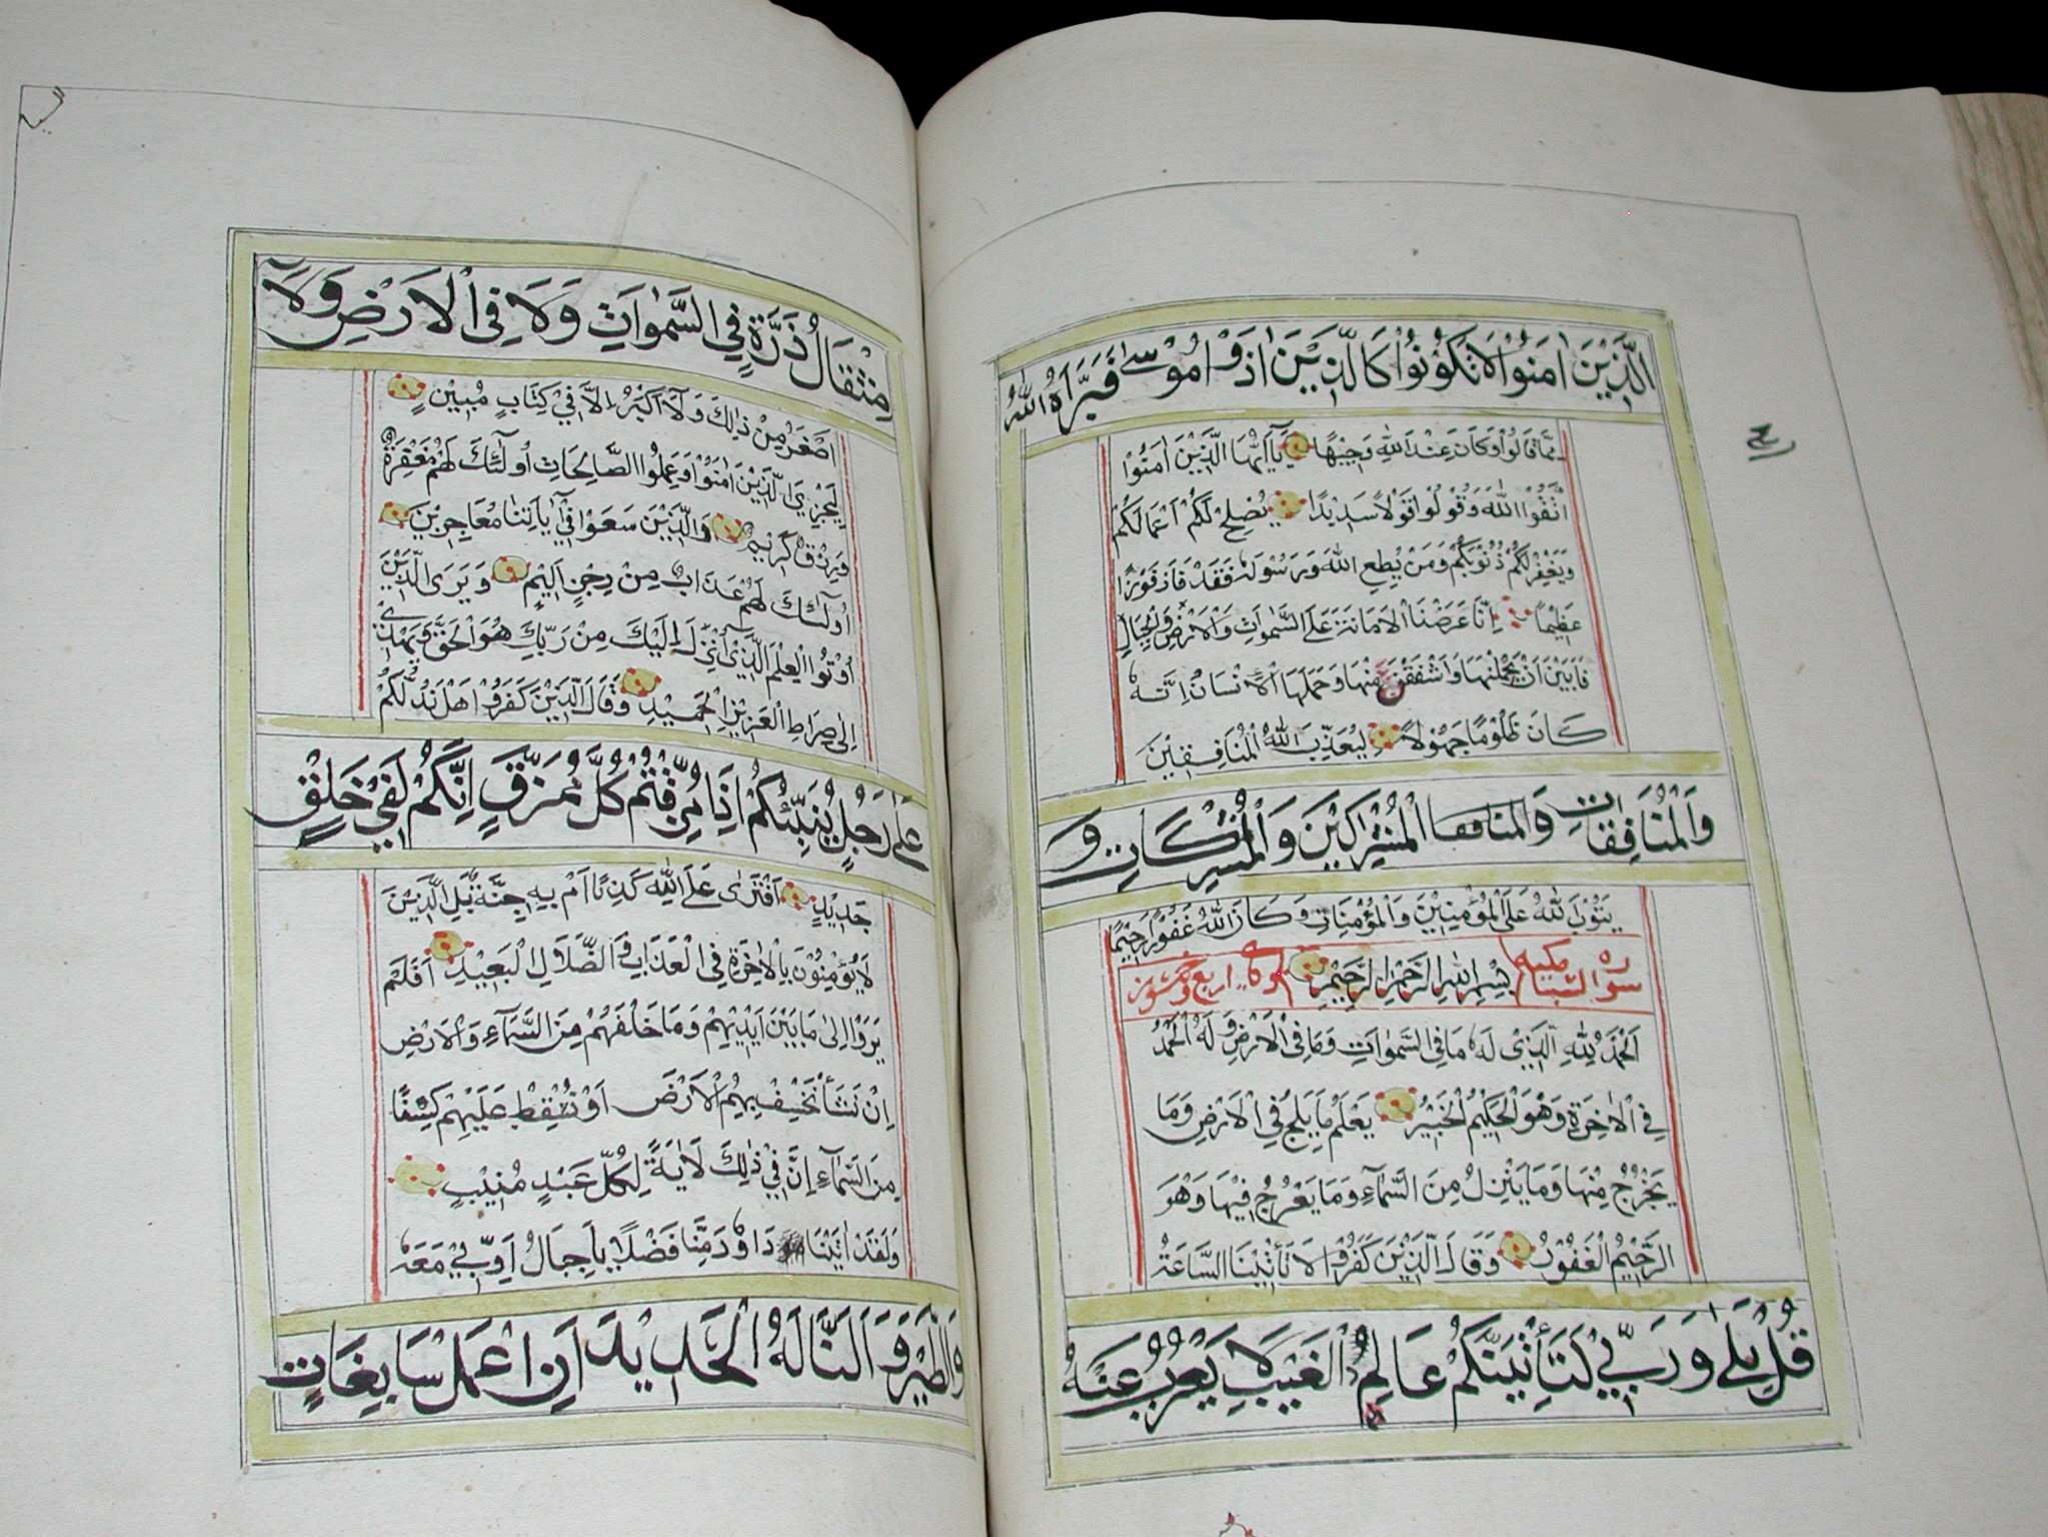 الَّذِيْنَ اٰمَنُوْا لَا تَكُوْنُوْا كَالَّذِيْنَ اٰذَوْا مُوْسٰى فَبَرَّاَهُ اللّٰهُ
مِمَّا قَالُوْا وَكَانَ عِنْدَ اللّٰهِ وَجِيْهًا يَآ اَيُّهَا الَّذِيْنَ اٰمَنُوْا
اتَّقُوْا اللّٰهَ وَقُوْلُوْا قَوْلًا سَدِيْدًا يُصْلِحْ لَكُمْ اَعْمَالَكُمْ
وَيَغْفِرْ لَكُمْ ذُنُوْبَكُمْ وَمَنْ يُطِعِ اللّٰهَ وَرَسُوْلَهٗ فَقَدْ فَازَ فَوْزًا
عَظِيْمًا اِنَّا عَرَضْنَا الْاَمَانَةَ عَلَى السَّمٰوَاتِ وَالْاَرْضِ وَالْجِبَالِ
فَاَبَيْنَ اَنْ يَحْمِلْنَهَا وَاَشْفَقْنَ مِنْهَا وَحَمَلَهَا الْاِنْسَانُ اِنَّهٗ
كَانَ ظَلُوْمًا جَهُوْلًا لِيُعَذِّبَ اللّٰهُ الْمُنَافِقِيْنَ
وَالْمُنَافِقَاتِ وَالمنافقا الْمُشْرِكِيْنَ وَالْمُشْرِكَاتِ وَ
يَتُوْبَ اللّٰهُ عَلَى الْمُؤْمِنِيْنَ وَالْمُؤْمِنَاتِ وَكَانَ اللّٰهُ غَفُوْرًا رَحِيْمًا
سورة السبا مكيه بِسْمِ اللّٰهِ الرَّحْمٰنِ الرَّحِيْمِ اربع وخمسون
اَلْحَمْدُ لِلّٰهِ الَّذِيْ لَهٗ مَا فِى السَّمٰوَاتِ وَمَا فِى الْاَرْضِ وَلَهُ الْحَمْدُ
فِى الْاٰخِرَةِ وَهُوَ الْحَكِيْمُ الْخَبِيْرُ يَعْلَمُ مَا يَلِجُ فِى الْاَرْضِ وَمَا
يَخْرُجُ مِنْهَا وَمَا يَنْزِلُ مِنَ السَّمَآءِ وَمَا يَعْرُجُ فِيْهَا وَهُوَ
الرَّحِيْمُ الْغَفُوْرُ وَقَالَ الَّذِيْنَ كَفَرُوْا لَا تَأْتِيْنَا السَّاعَةُ
قُلْ بَلٰى وَرَبِّيْ لَتَأْتِيَنَّكُمْ عَالِمِ الْغَيْبِ لَا يَعْزُبُ عَنْهُ
مِثْقَالُ ذَرَّةٍ فِى السَّمٰوَاتِ وَلَا فِى الْاَرْضِ وَلَآ
اَصْغَرُ مِنْ ذٰلِكَ وَلَآ اَكْبَرُ اِلَّا فِيْ كِتَابٍ مُبِيْنٍ
لِيَجْزِيَ الَّذِيْنَ اٰمَنُوْا وَعَمِلُوا الصَّالِحَاتِ اُولٰٓئِكَ لَهُمْ مَغْفِرَةٌ
وَرِزْقٌ كَرِيْمٌ وَالَّذِيْنَ سَعَوْا فِيْٓ اٰيَاتِنَا مُعَاجِزِيْنَ
اُولٰٓئِكَ لَهُمْ عَذَابٌ مِنْ رِجْزٍ اَلِيْمٍ وَيَرَى الَّذِيْنَ
اُوْتُوا الْعِلْمَ الَّذِيْٓ اُنْزِلَ اِلَيْكَ مِنْ رَبِّكَ هُوَ الْحَقَّ وَيَهْدِيْ
اِلٰى صِرَاطِ الْعَزِيْزِ الْحَمِيْدِ وَقَالَ الَّذِيْنَ كَفَرُوْا هَلْ نَدُلُّكُمْ
عَلٰى رَجُلٍ يُنَبِّئُكُمْ اِذَا مُزِّقْتُمْ كُلَّ مُمَزَّقٍ اِنَّكُمْ لَفِيْ خَلْقٍ
جَدِيْدٍ اَفْتَرٰى عَلَى اللّٰهِ كَذِبًا اَمْ بِهٖ جِنَّةٌ بَلِ الَّذِيْنَ
لَا يُؤْمِنُوْنَ بِالْاٰخِرَةِ فِى الْعَذَابِ وَالضَّلَالِ الْبَعِيْدِ اَفَلَمْ
يَرَوْا اِلٰى مَا بَيْنَ اَيْدِيْهِمْ وَمَا خَلْفَهُمْ مِنَ السَّمَآءِ وَالْاَرْضِ
اِنْ نَشَأْ نَخْسِفْ بِهِمُ الْاَرْضَ اَوْ نُسْقِطْ عَلَيْهِمْ كِسَفًا
مِنَ السَّمَآءِ اِنَّ فِيْ ذٰلِكَ لَاٰيَةً لِكُلِّ عَبْدٍ مُنِيْبٍ
وَلَقَدْ اٰتَيْنَا دَاوٗدَ مِنَّا فَضْلًا يَاجِبَالُ اَوِّبِيْ مَعَهٗ
وَالطَّيْرَ وَاَلَنَّا لَهُ الْحَدِيْدَ اَنِ اعْمَلْ سَابِغَاتٍ